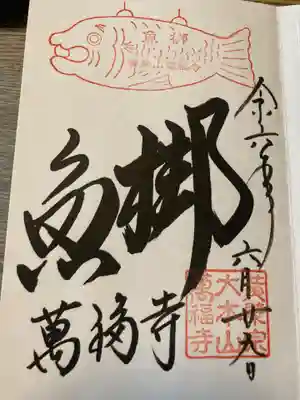 魚梆
魚梆
萬福寺
令六年
六月廿九日
黄檗宗
大本山
萬福寺